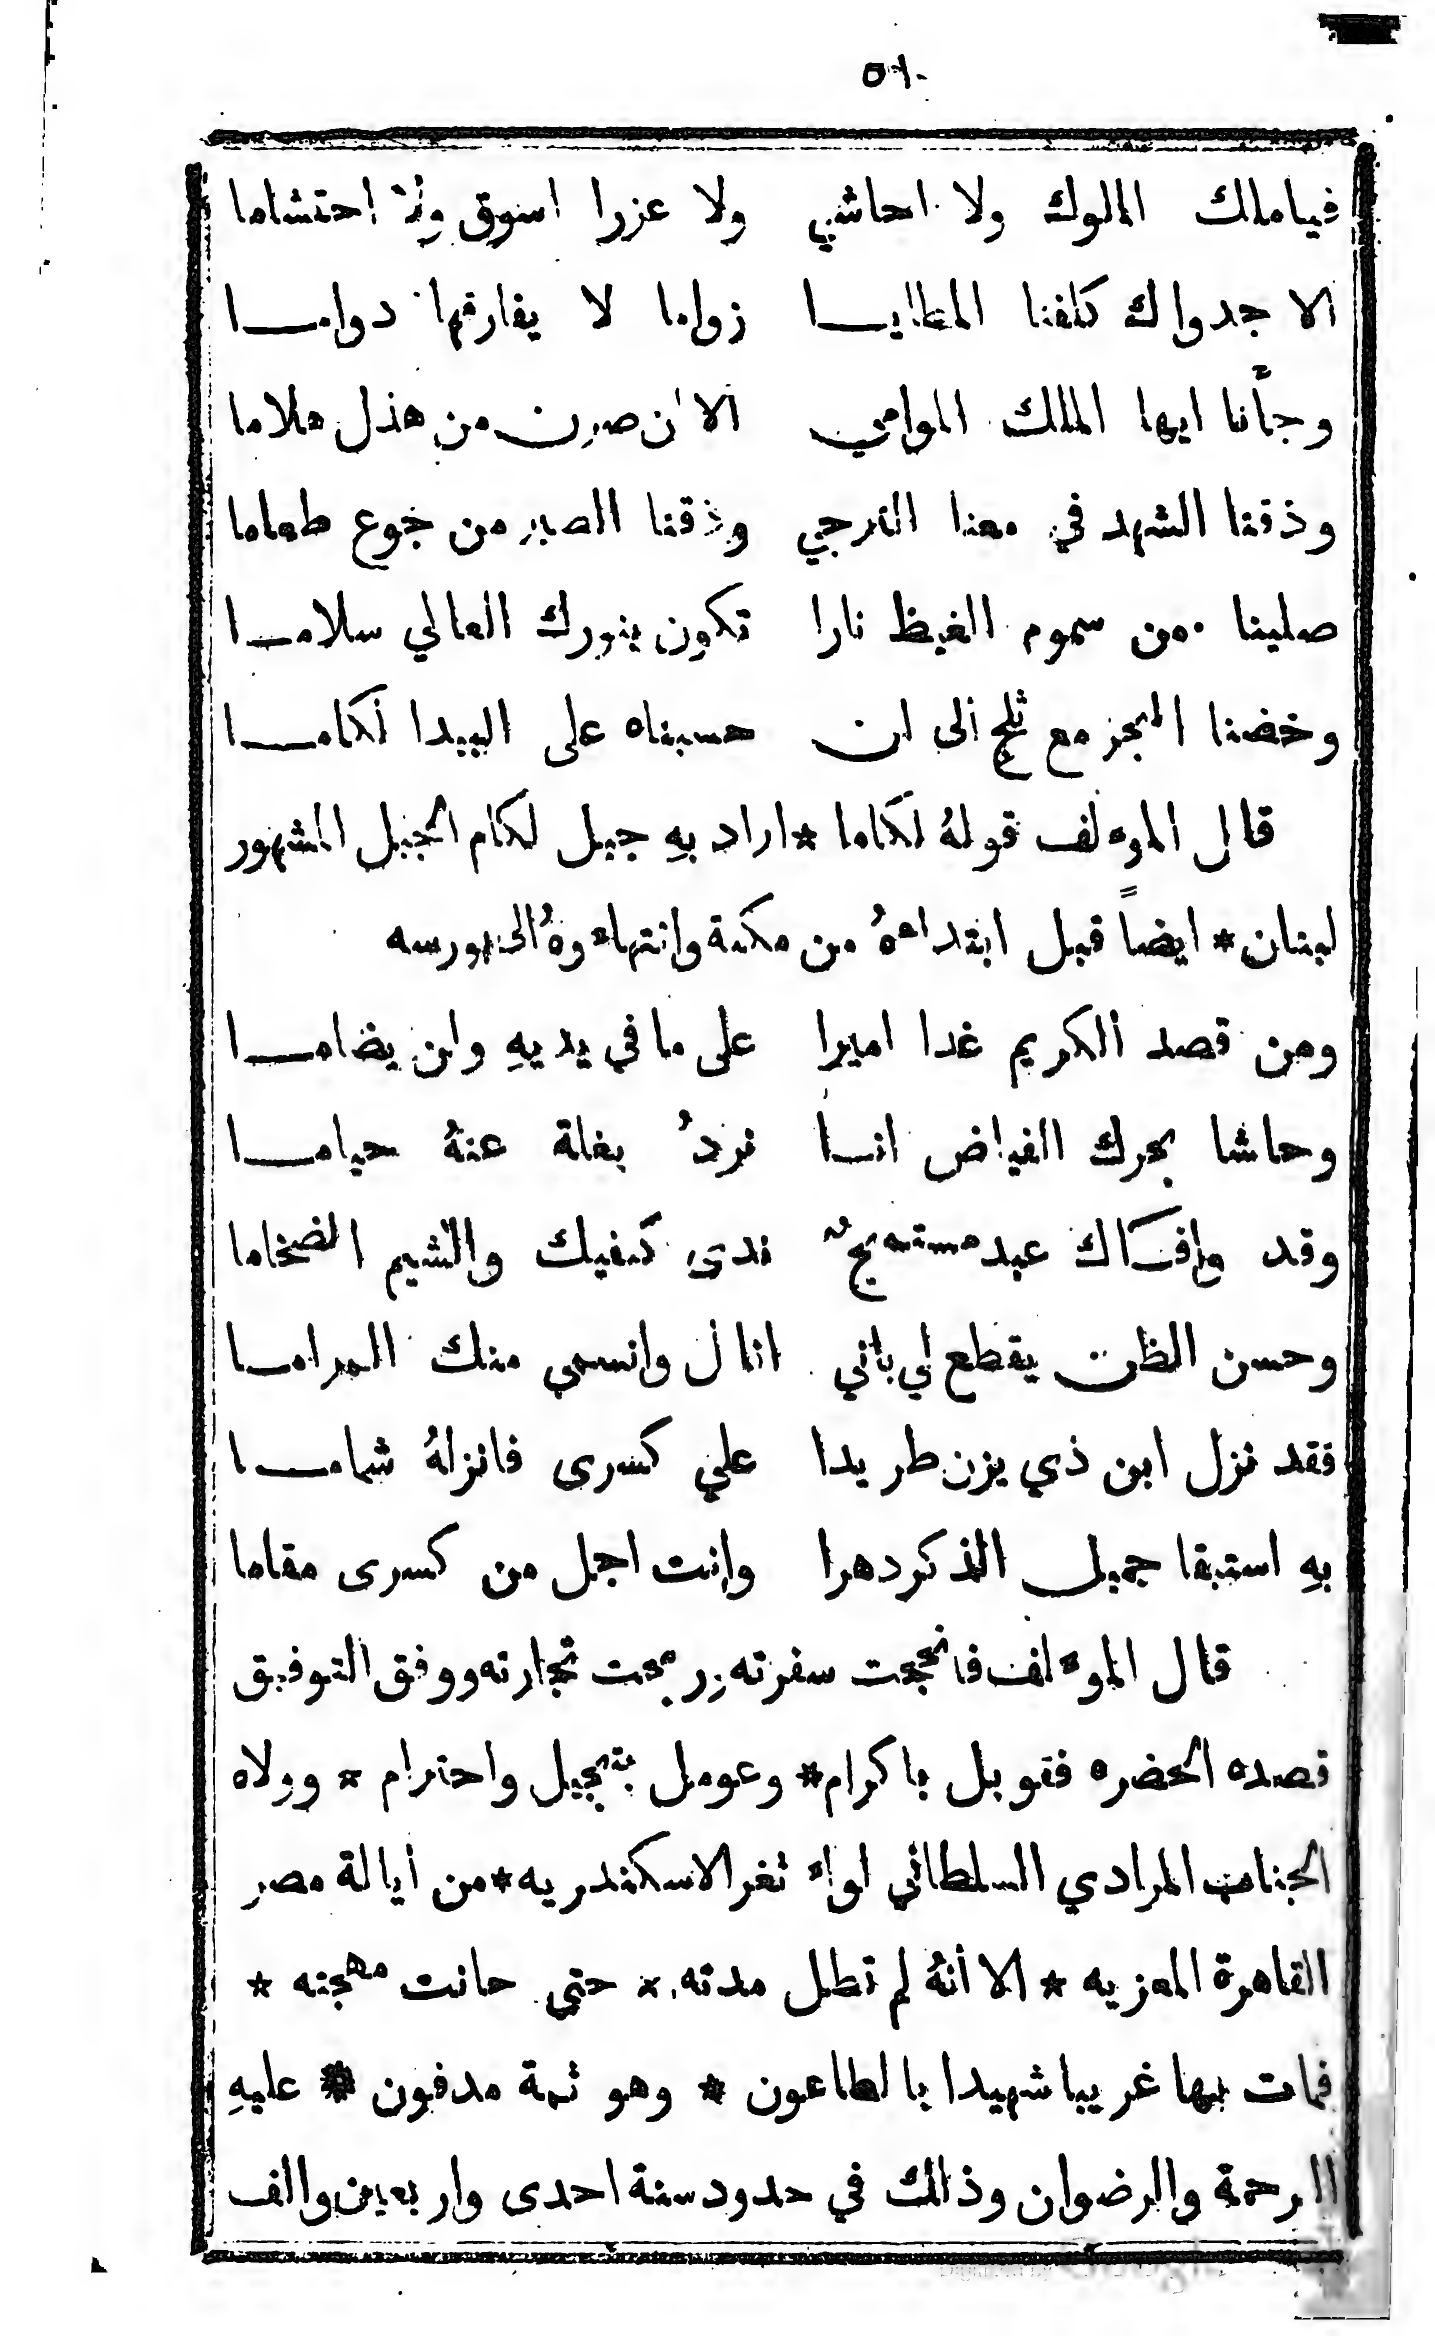 ٥٦
فياملك الملوك ولا احاشي ولا عزرا اسوق ولا احتشاما
الا جدواك كلفنا المطايــا زواما لا يفارقها دوامــا
وجأنا ايها الملك الموامي الا ان صرن من هذل هلاما
وذقنا الشهد في معنا الترجي وذقنا الصبر من جوع طعاما
صلينا من سموم الغيظ نارا تكون بنورك العالي سلامــا
وخضنا البحر مع ثلج الى ان حسبناه على البيدا لكامــا
قال المولف قوله لكاما * اراد بهِ جبل لكام الجبل المشهور
لبنان * ايضاً قيل ابتداهُ من مكة وانتهاءوهُ الى بورسه
ومن قصد الكريم غدا اميرا على ما في يديهِ ولن يضامــا
وحاشا بحرك الفياض انــا نردُ بغلة عنهُ حيامــا
وقد وافــاك عبد مستميح ندى كفيك والشيم الضخاما
وحسن الظن يقطع لي باني انال وانسمي منك المرامــا
فقد نزل ابن ذي يزن طريدا علي كسرى فانزلهُ شمامــا
بهِ استبقا جميل الذكر دهرا وانت اجل من كسرى مقاما
قال المولف فانححت سفرته وربحت تجارته ووفق التوفيق
قصده الحضره فقوبل باكرام * وعومل بتبجيل واحترام * وولاه
الجناب المرادي السلطاني لواء ثغر الاسكندريه * من أيالة مصر
القاهرة المعزيه * الا أنهُ لم تطل مدته * حتى حانت مهجته *
فمات بها غريبا شهيدا بالطاعون * وهو ثمة مدفون * عليهِ
الرحمة والرضوان وذالك في حدود سنة احدى واربعين والف